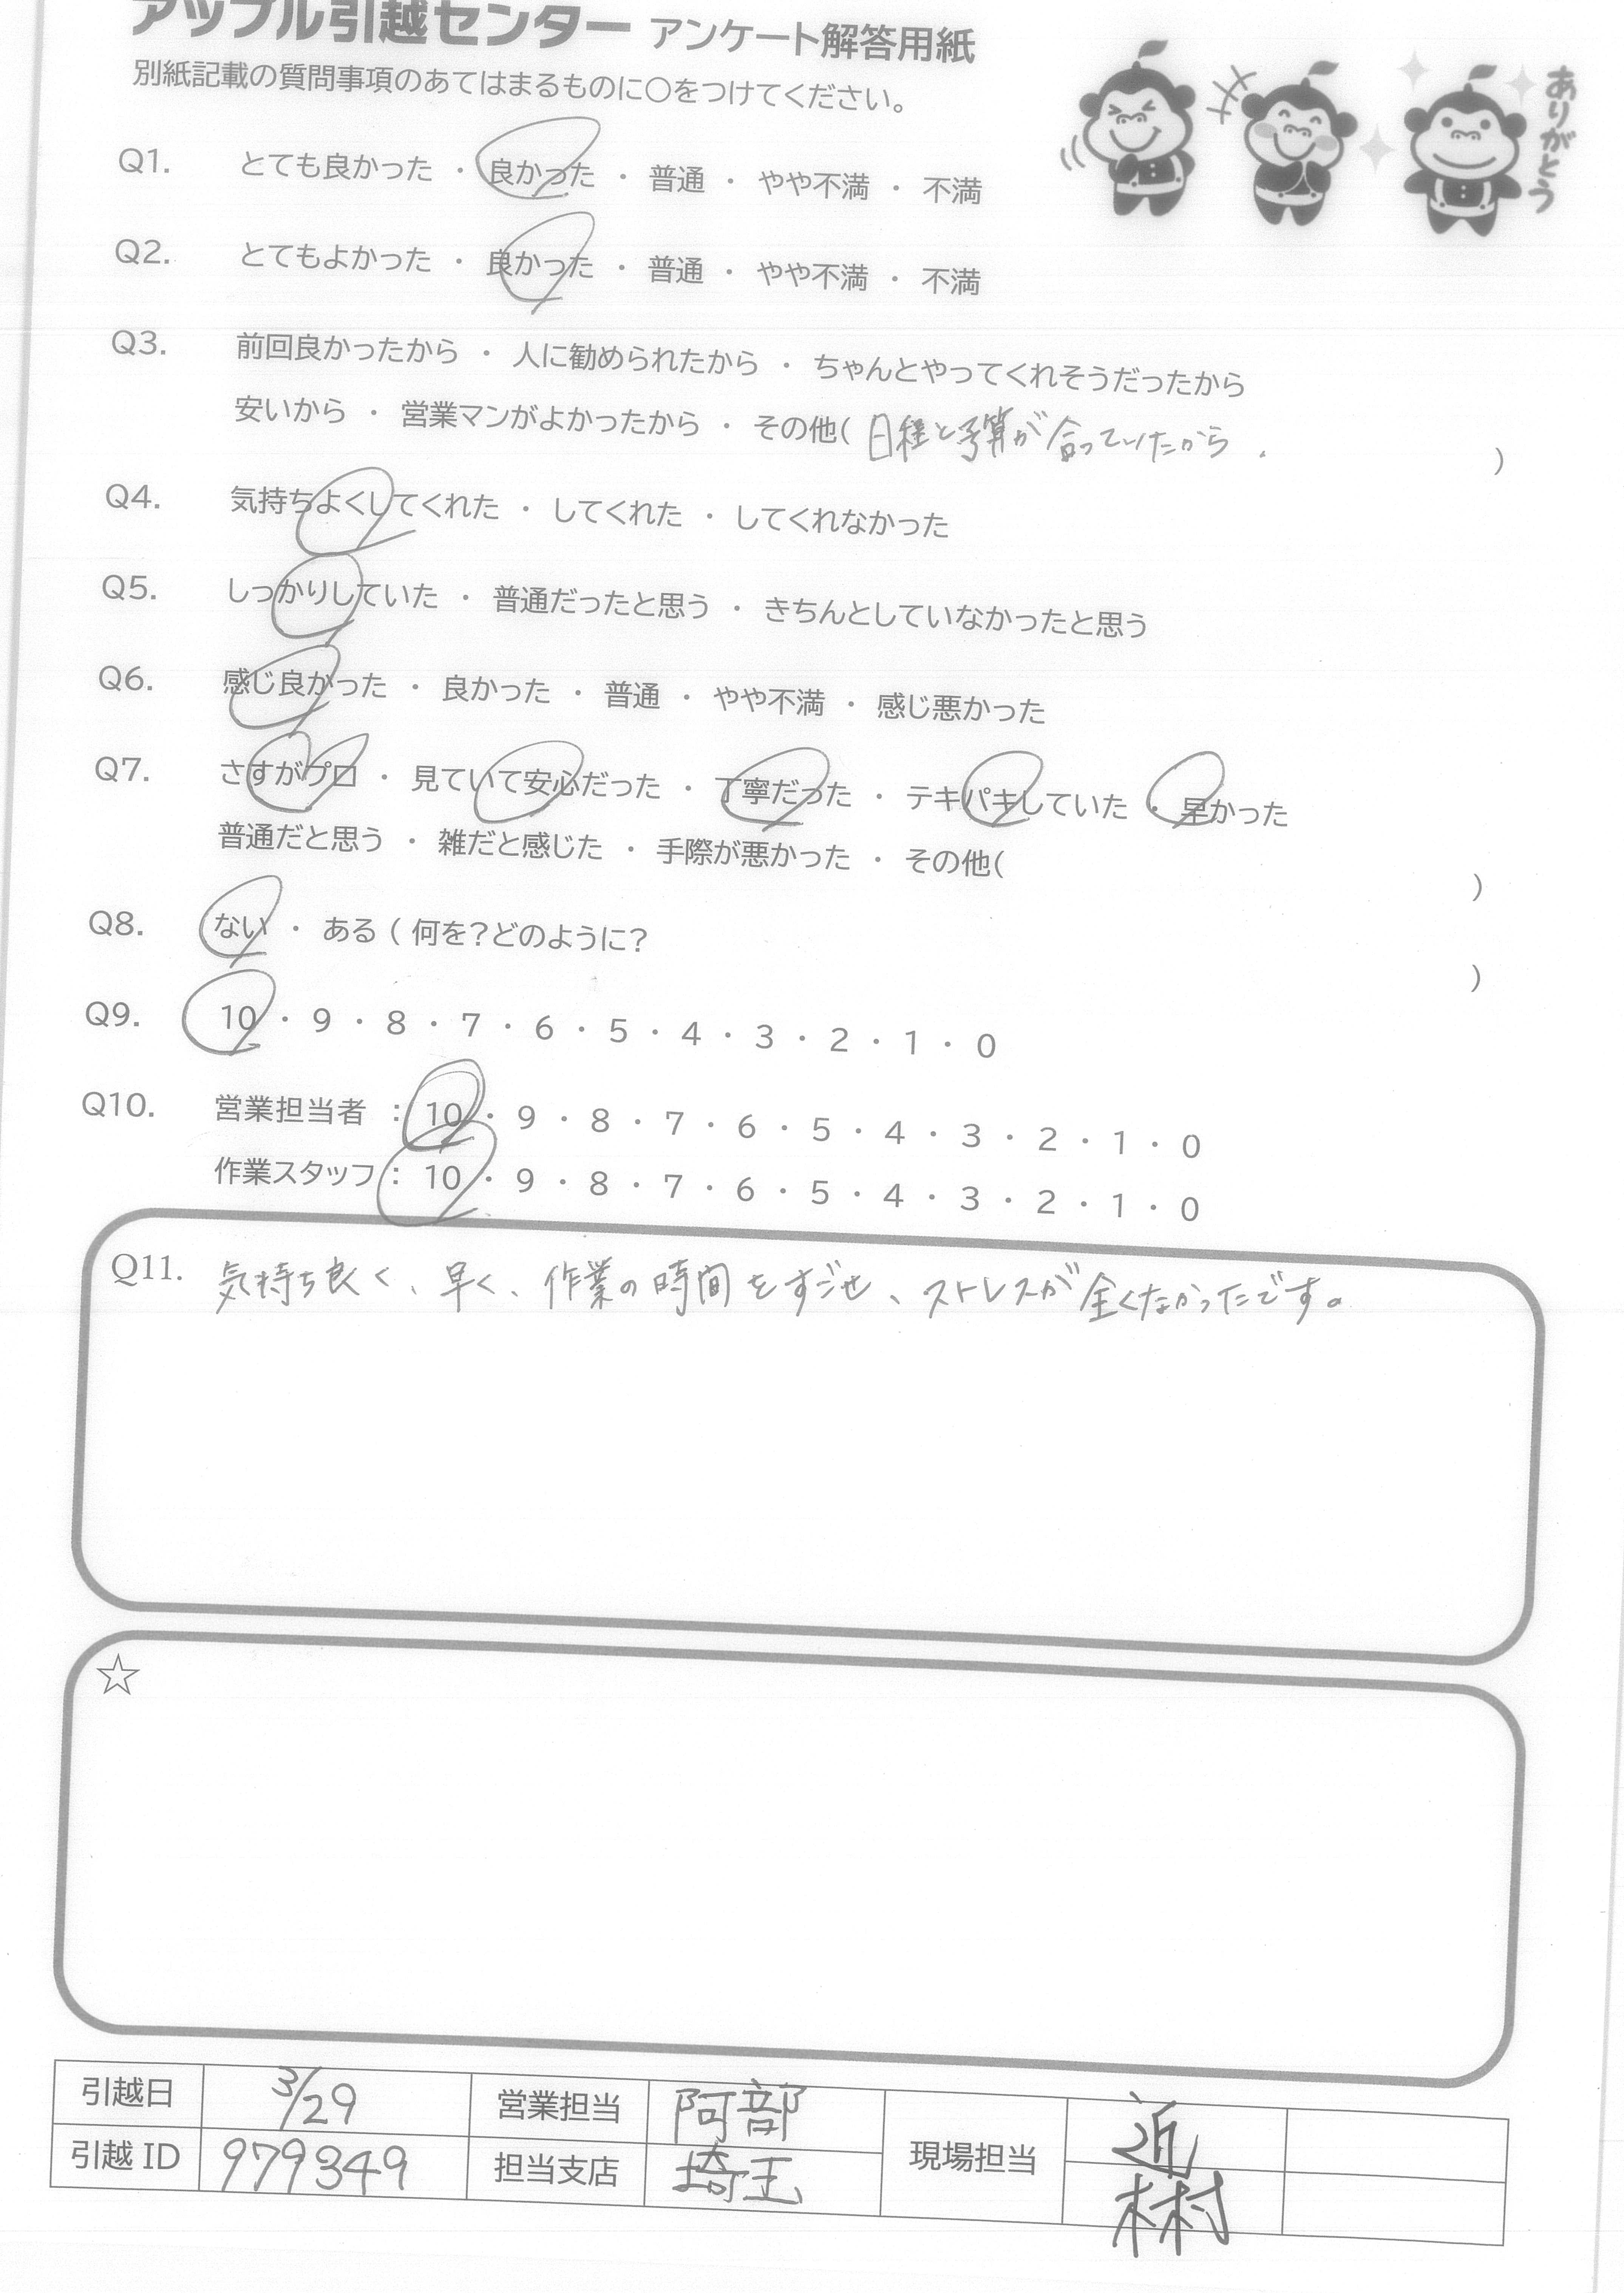 アップル引越センター アンケート解答用紙
別紙記載の質問事項のあてはまるものに○をつけてください。
ありがとう
Q1. とても良かった ・ 良かった ・ 普通 ・ やや不満 ・ 不満
Q2. とてもよかった ・ 良かった ・ 普通 ・ やや不満 ・ 不満
Q3. 前回良かったから ・ 人に勧められたから ・ ちゃんとやってくれそうだったから
安いから ・ 営業マンがよかったから ・ その他( 日程と予算が合っていたから. )
Q4. 気持ちよくしてくれた ・ してくれた ・ してくれなかった
Q5. しっかりしていた ・ 普通だったと思う ・ きちんとしていなかったと思う
Q6. 感じ良かった ・ 良かった ・ 普通 ・ やや不満 ・ 感じ悪かった
Q7. さすがプロ ・ 見ていて安心だった ・ 丁寧だった ・ テキパキしていた ・ 早かった
普通だと思う ・ 雑だと感じた ・ 手際が悪かった ・ その他( )
Q8. ない ・ ある ( 何を?どのように? )
Q9. 10 ・ 9 ・ 8 ・ 7 ・ 6 ・ 5 ・ 4 ・ 3 ・ 2 ・ 1 ・ 0
Q10. 営業担当者 : 10 ・ 9 ・ 8 ・ 7 ・ 6 ・ 5 ・ 4 ・ 3 ・ 2 ・ 1 ・ 0
作業スタッフ : 10 ・ 9 ・ 8 ・ 7 ・ 6 ・ 5 ・ 4 ・ 3 ・ 2 ・ 1 ・ 0
Q11. 気持ち良く、早く、作業の時間をすごせ、ストレスが全くなかったです。
☆
引越日 3/29 営業担当 阿部 現場担当 近
引越 ID 979349 担当支店 埼玉